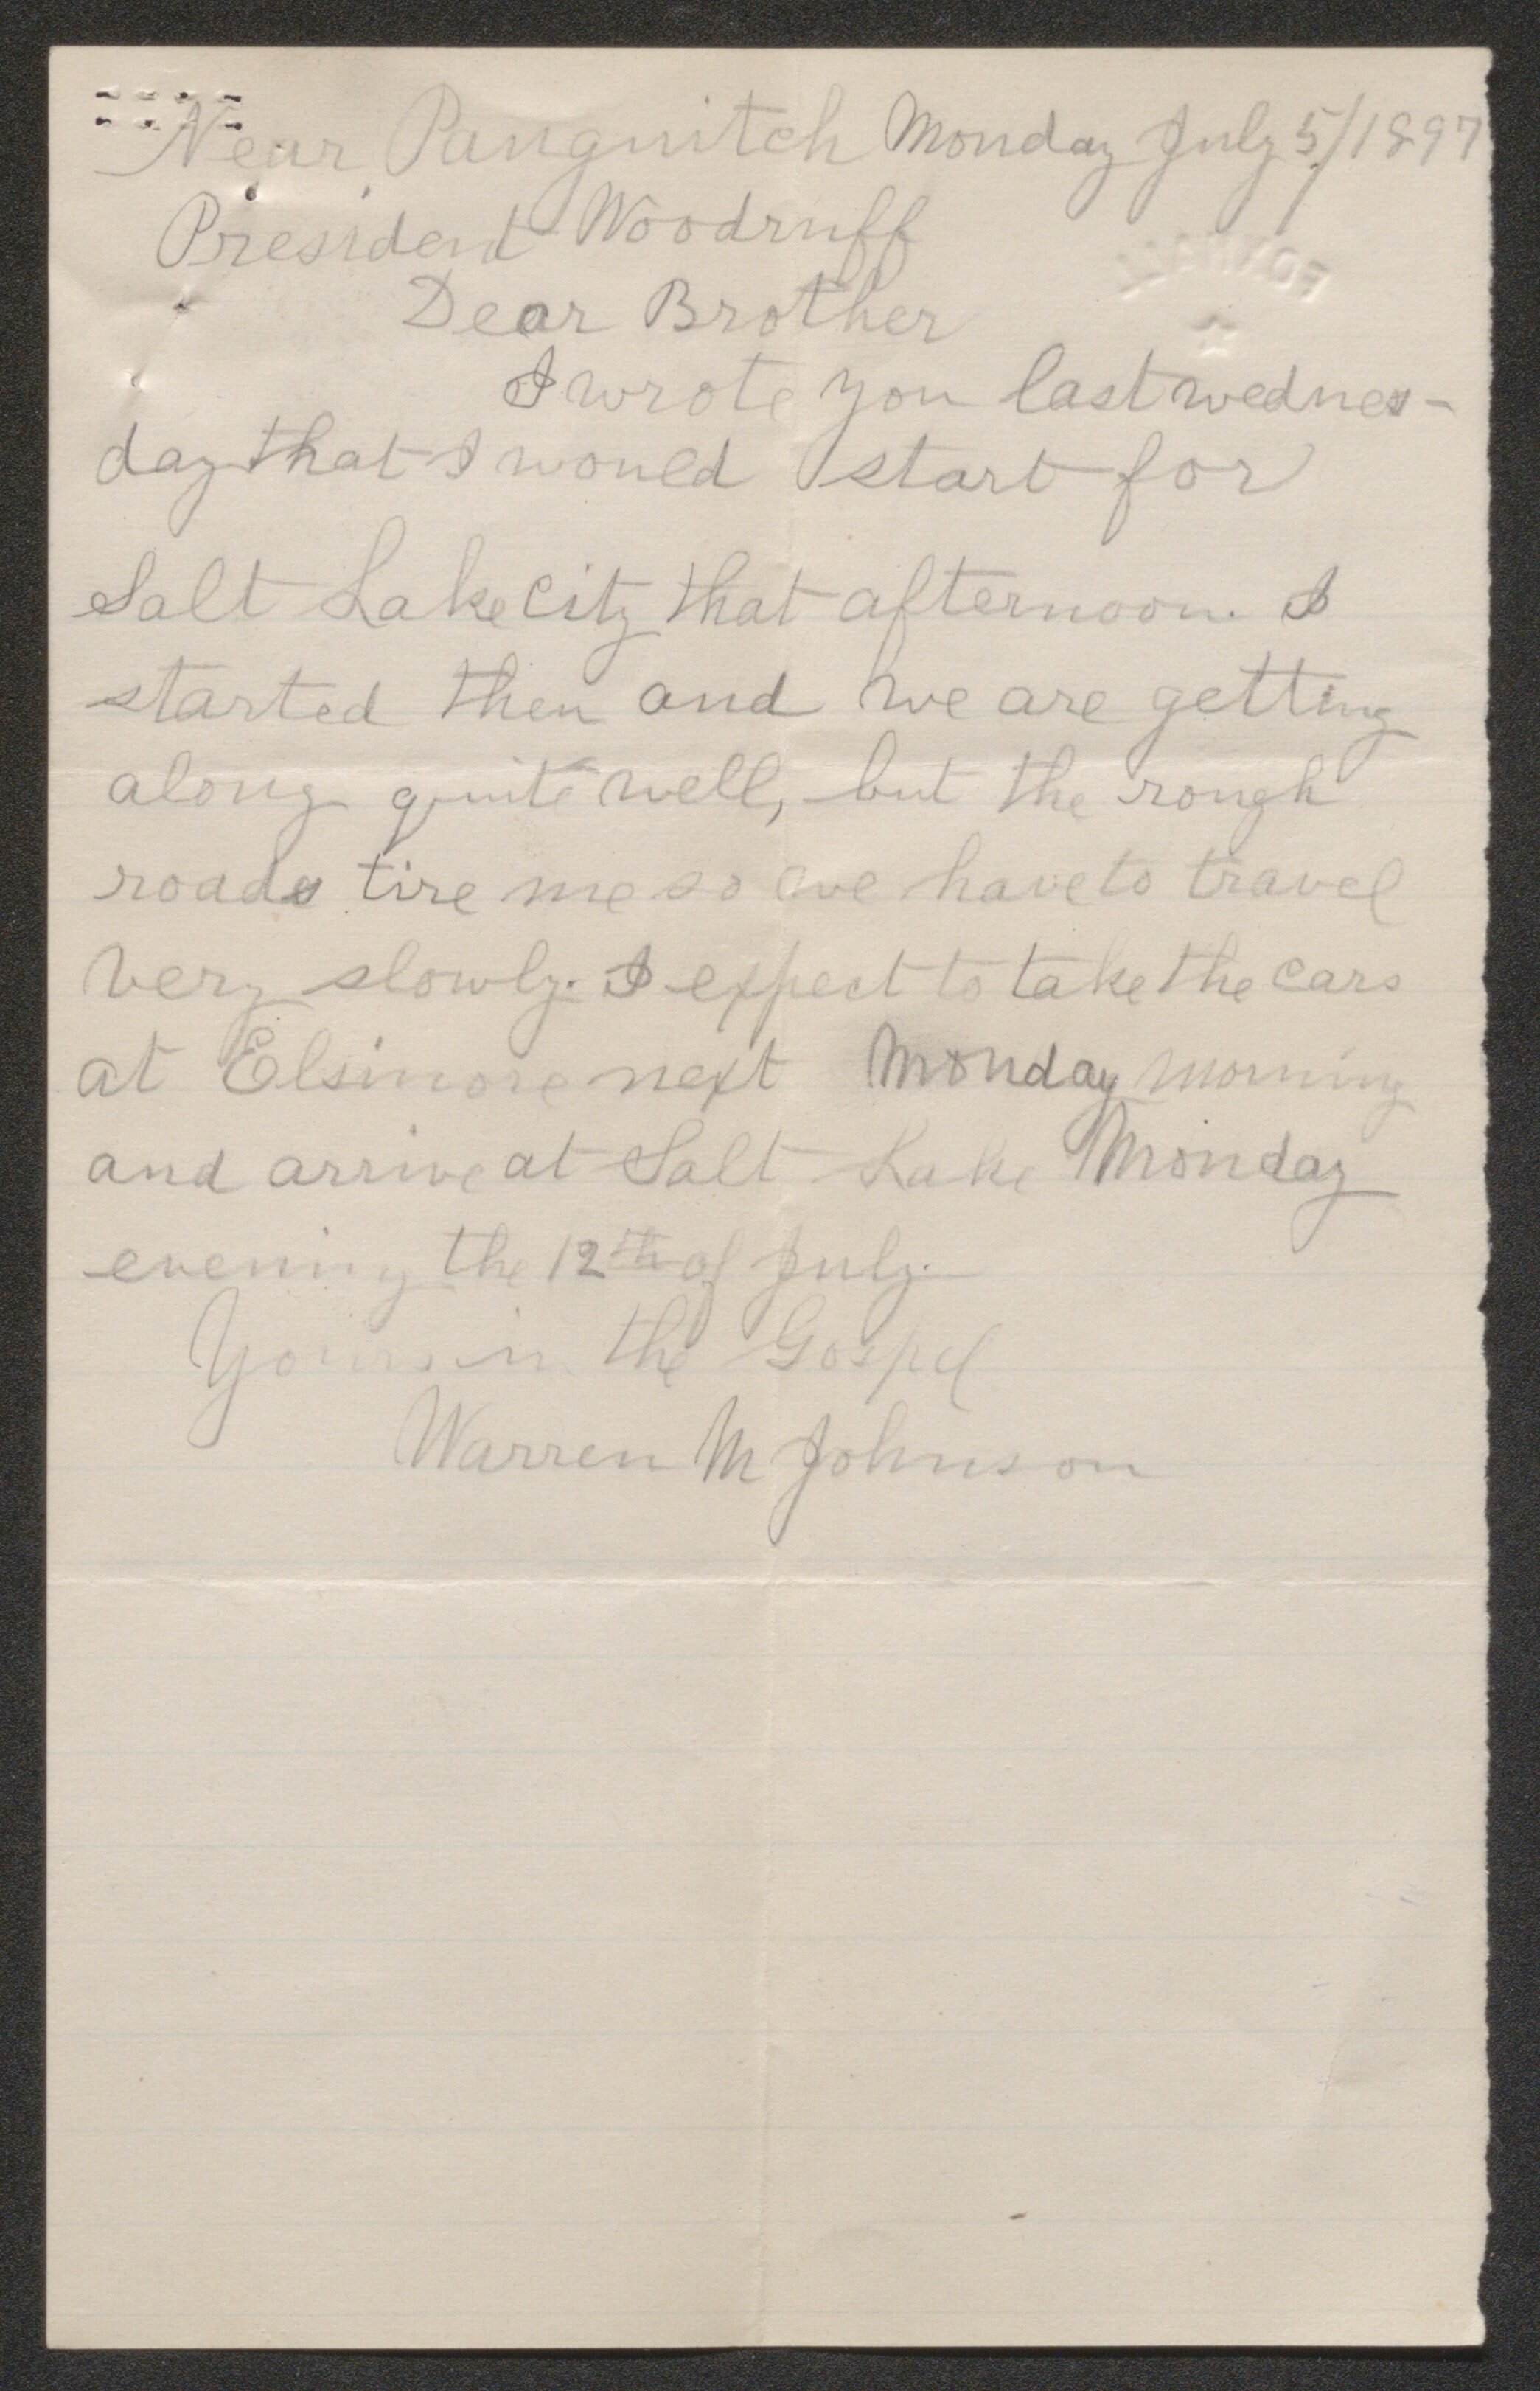 Near Panguitch Monday July 5/1897
President Woodruff
Dear Brother
I wrote you last wednes-
day that I would start for
Salt Lake City that afternoon. I
started then and we are getting
along quite well, but the rough
roads tire me so we have to travel
very slowly. I expect to take the cars
at Elsinore next Monday morning
and arrive at Salt Lake Monday
evening the 12th of July.
Yours in the Gospel
Warren M Johnson